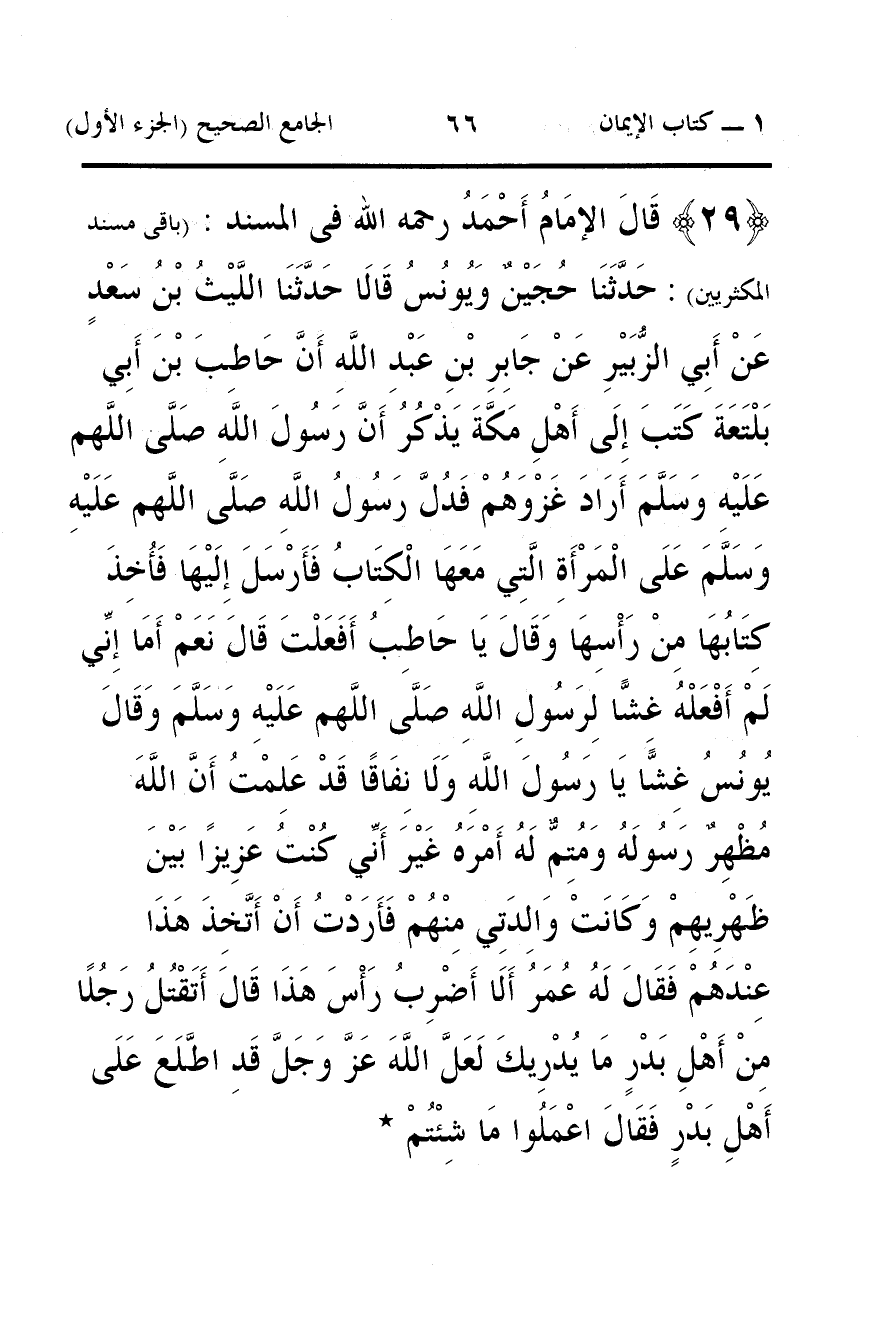 ١ ــ كتاب الإيمان ٦٦ الجامع الصحيح (الجزء الأول)
﴿٢٩﴾ قَالَ الإمَامُ أَحْمَدُ رحمه الله فى المسند : (باقى مسند
المكثريين) : حَدَّثَنَا حُجَيْنٌ وَيُونُسُ قَالَا حَدَّثَنَا اللَّيْثُ بْنُ سَعْدٍ
عَنْ أَبِي الزُّبَيْرِ عَنْ جَابِرِ بْنِ عَبْدِ اللَّهِ أَنَّ حَاطِبَ بْنَ أَبِي
بَلْتَعَةَ كَتَبَ إِلَى أَهْلِ مَكَّةَ يَذْكُرُ أَنَّ رَسُولَ اللَّهِ صَلَّى اللَّهم
عَلَيْهِ وَسَلَّمَ أَرَادَ غَزْوَهُمْ فَدُلَّ رَسُولُ اللَّهِ صَلَّى اللَّهم عَلَيْهِ
وَسَلَّمَ عَلَى الْمَرْأَةِ الَّتِي مَعَهَا الْكِتَابُ فَأَرْسَلَ إِلَيْهَا فَأُخِذَ
كِتَابُهَا مِنْ رَأْسِهَا وَقَالَ يَا حَاطِبُ أَفَعَلْتَ قَالَ نَعَمْ أَمَا إِنِّي
لَمْ أَفْعَلْهُ غِشًّا لِرَسُولِ اللَّهِ صَلَّى اللَّهم عَلَيْهِ وَسَلَّمَ وَقَالَ
يُونُسُ غِشًّا يَا رَسُولَ اللَّهِ وَلَا نِفَاقًا قَدْ عَلِمْتُ أَنَّ اللَّهَ
مُظْهِرٌ رَسُولَهُ وَمُتِمٌّ لَهُ أَمْرَهُ غَيْرَ أَنِّي كُنْتُ عَزِيزًا بَيْنَ
ظَهْرِيهِمْ وَكَانَتْ وَالِدَتِي مِنْهُمْ فَأَرَدْتُ أَنْ أَتَّخِذَ هَذَا
عِنْدَهُمْ فَقَالَ لَهُ عُمَرُ أَلَا أَضْرِبُ رَأْسَ هَذَا قَالَ أَتَقْتُلُ رَجُلًا
مِنْ أَهْلِ بَدْرٍ مَا يُدْرِيكَ لَعَلَّ اللَّهَ عَزَّ وَجَلَّ قَدِ اطَّلَعَ عَلَى
أَهْلِ بَدْرٍ فَقَالَ اعْمَلُوا مَا شِئْتُمْ *